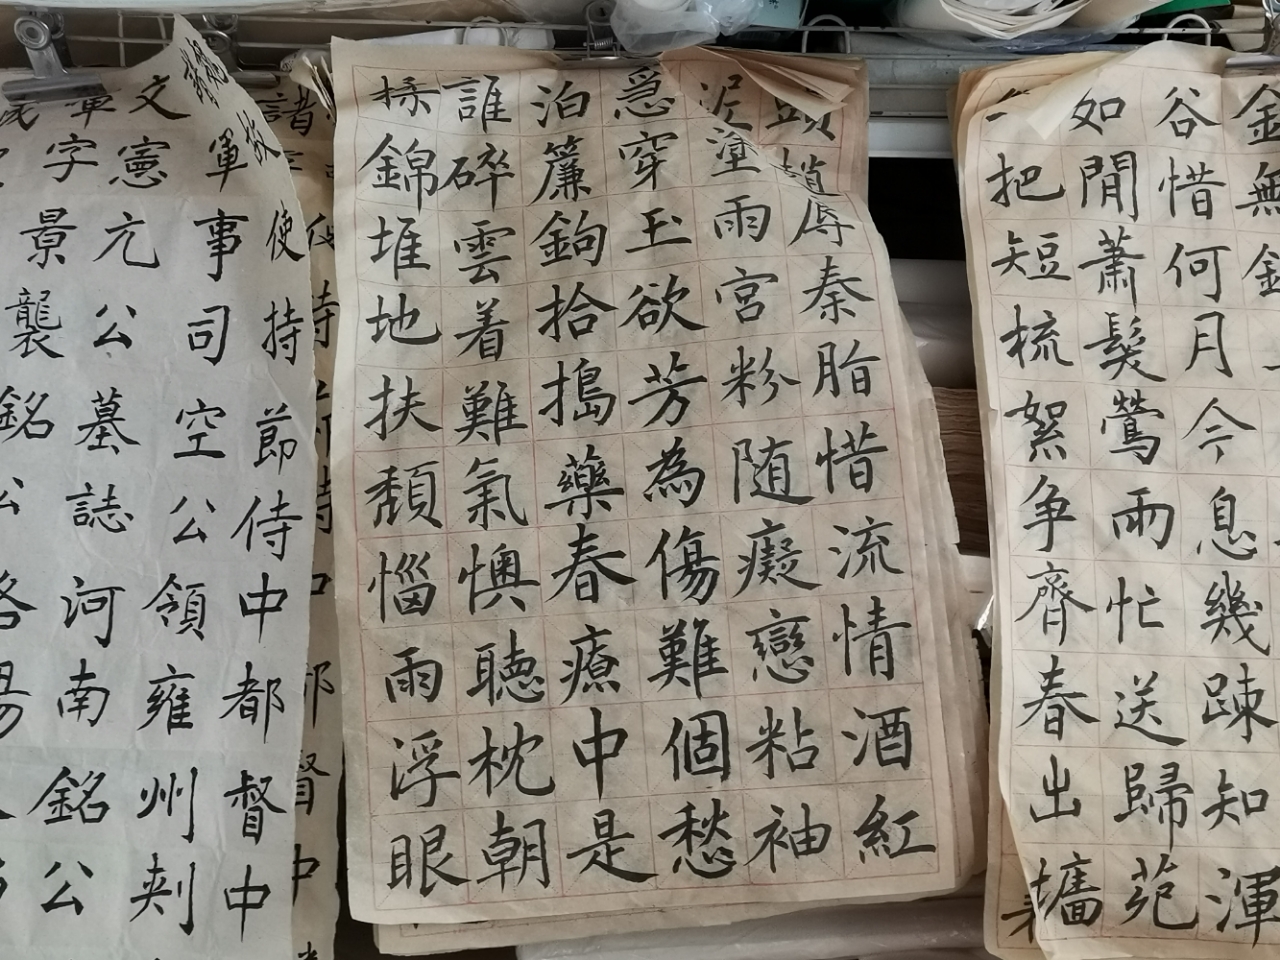 谷惜何月今息幾踈知渾
如閒蕭髮鶯雨忙送歸苑
把短梳絮争齊春出牆
秦脂惜流情酒紅
泥塗雨宮粉随癡戀粘袖
急穿玉欲芳為傷難個愁
泊簾鉤拾搗藥春療中是
誰碎雲着難氣懊聽枕朝
揉錦堆地扶頹惱雨浮眼
故使持節侍中都督中
軍事司空公領雍州刾
文憲元公墓誌河南銘公
字景襲銘公